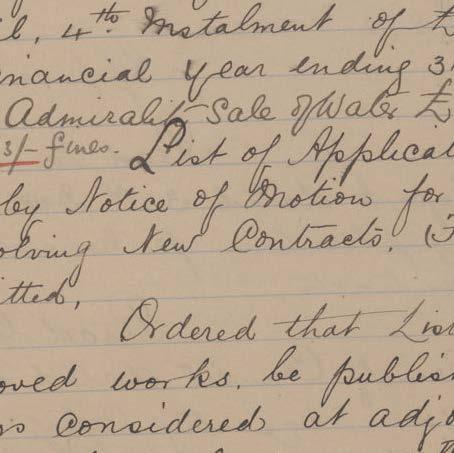 il, 4th Instalment of £
inancial year ending 3
Admiralty Sale of Water £
3/- fines. List of Applicat
by Notice of Motion for
olving New Contracts, (
itted,
Ordered that List
oved works, be publish
ss considered at adjo